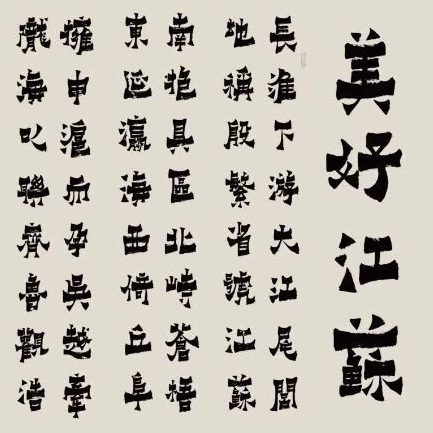 美好江蘇
長淮下游大江尾閭
地稱殷繁省號江蘇
南挹具區北峙蒼梧
東延瀛海西倚丘阜
擁申滬而孕吳越牽
隴海以聯齊魯觀浩